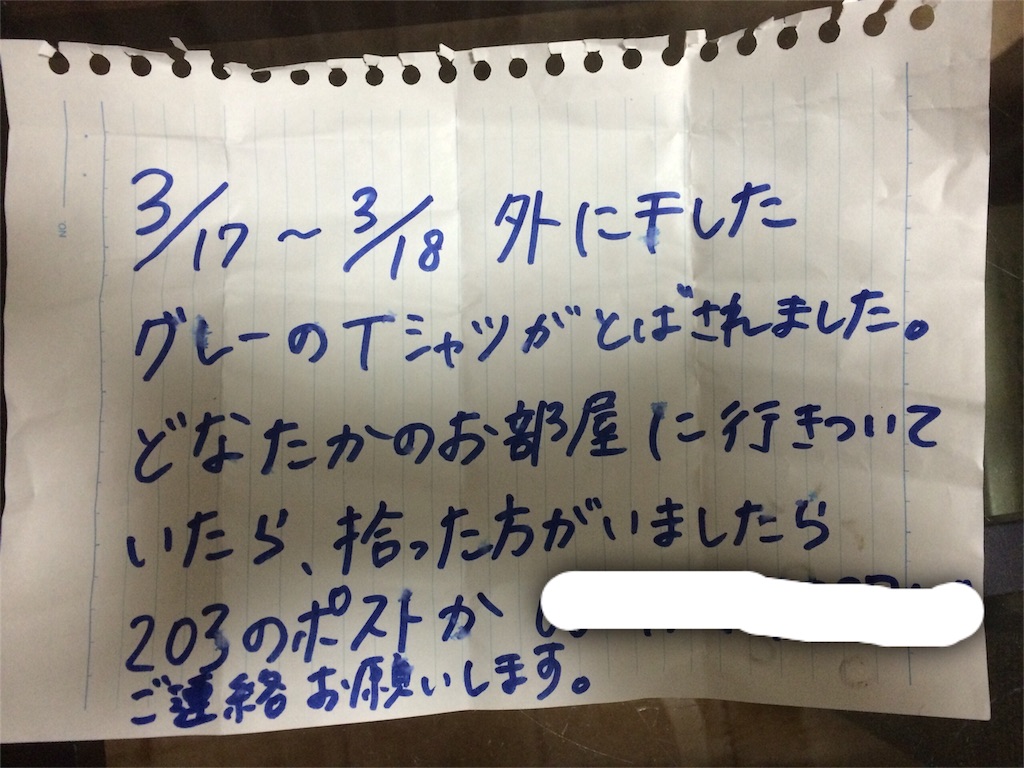 NO.
3/17 ~ 3/18 外に干した
グレーのTシャツがとばされました。
どなたかのお部屋に行きついて
いたら、拾った方がいましたら
203のポストか
ご連絡お願いします。